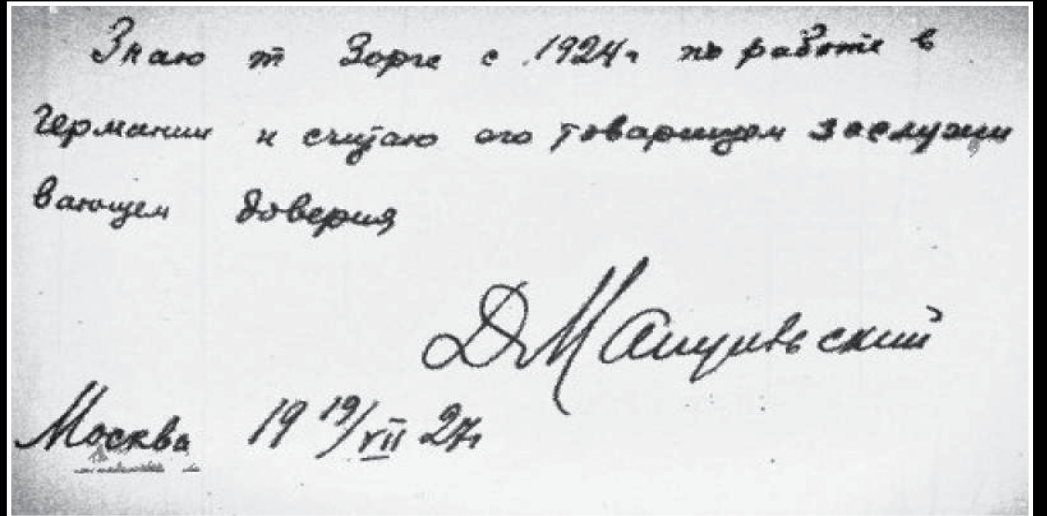 Знаю т Зорге с 1924г по работе в
Германии и считаю его товарищем заслужи
вающем доверия
Д Мануильский
Москва 19 19/VII 27г